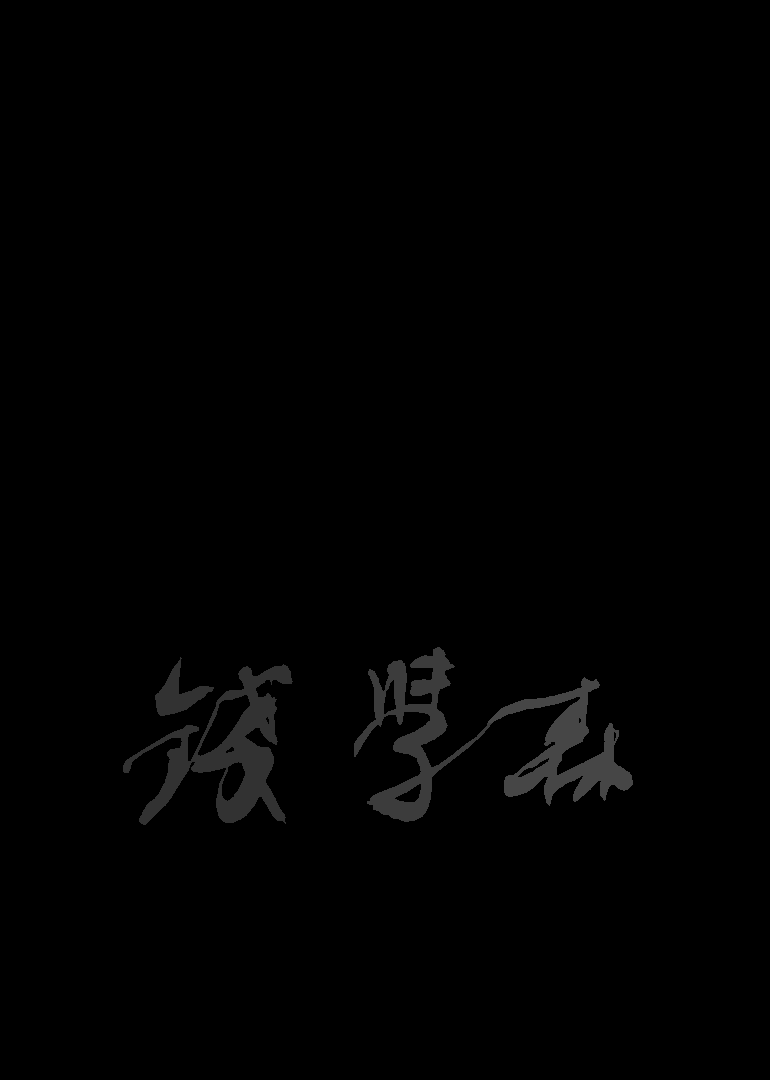 錢學森